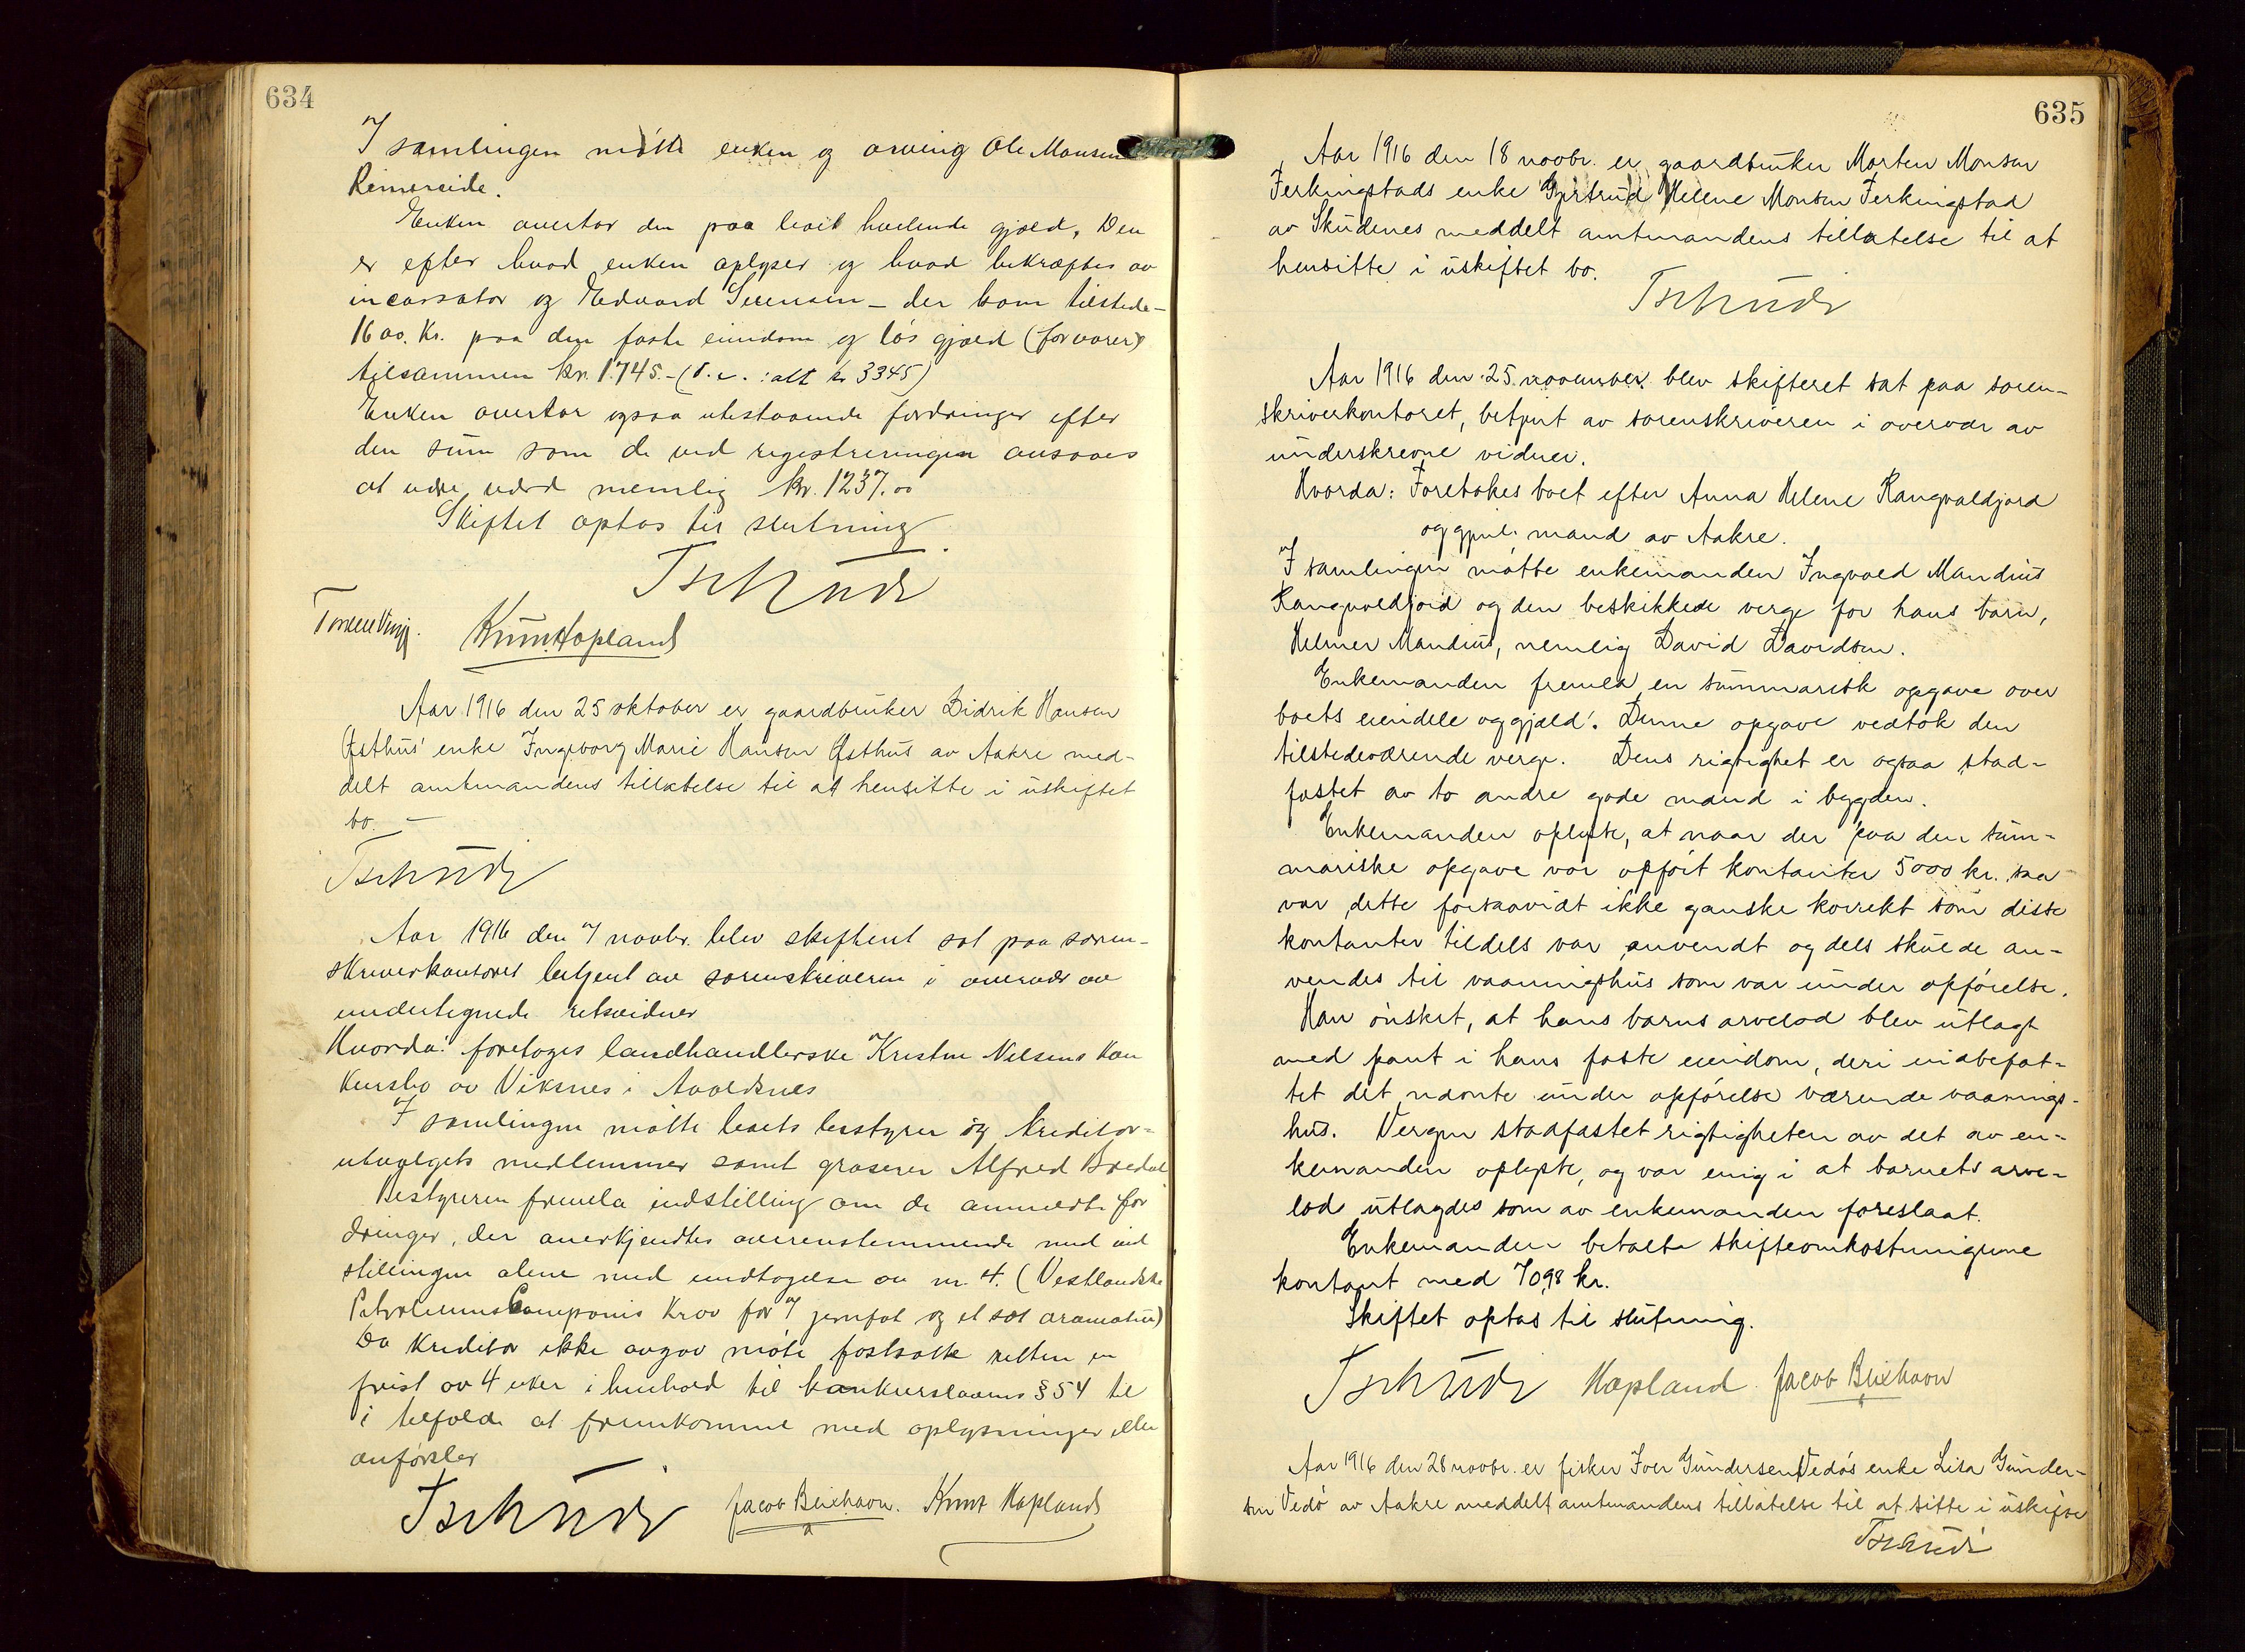 634
I samlingen mötte enken og arving Ole Monsen
Rimereide.
Enken overtar den paa boet hvilende gjæld. Den
er efter hvad enken oplyser og hvad bekræftes av
incassator og Edvard Sørensen – der kom tilstede –
1600. Kr. paa den faste eiendom og lös gjæld (for varer)
tilsammen kr. 1745.- (d. e. : alt kr 3345)
Enken overtar ogsaa utestaaende fordringer efter
den sum som de ved registreringen ansaaes
at være værd nemlig kr. 1237.00
Skiftet optas til slutning.
Tschudi
Knut Hapland
Aar 1916 den 25 oktober er gaardbruker Didrik Hansen
Østhus' enke Ingeborg Marie Hansen Østhus av Aakre med-
delt amtmandens tillatelse til at hensitte i uskiftet
bo. –
Tschudi
Aar 1916 den 7 novbr. blev skifteret sat paa soren-
skriverkontoret betjent av sorenskriveren i overvær av
undertegnede retsvidner
Hvorda: foretoges landhandlerske Kristine Nilsens kon
kursbo av Viksnes i Avaldsnes
I samlingen mötte boets bestyrer og kreditor-
utvalgets medlemmer samt grosserer Alfred Bredal
Bestyreren fremla indstilling om de anmeldte for
dringer, der anerkjendtes overensstemmende med ind
stillingen alene med undtagelse av nr. 4. (Vestlandske
Petroleums Companis krav for 7 jernfat og et sæt armatur)
Da kreditor ikke avgav möte fastsatte retten en
frist av 4 uker i henhold til konkurslovens § 54 til
i tilfælde at fremkomme med oplysninger eller
anförsler
Tschudi Jacob Blixhavn. Knut Hapland
635
Aar 1916 den 18 novbr. er gaardbruker Morten Monsen
Ferkingstads enke Gjertrud Helene Monsen Ferkingstad
av Skudenes meddelt amtmandens tillatelse til at
hensitte i uskiftet bo.
Tschudi
Aar 1916 den 25 november blev skifteret sat paa soren-
skriverkontoret, betjent av sorenskriveren i overvær av
underskrevne vidner.
Hvorda: Foretokes boet efter Anna Helene Rangvaldjord
og gjenl. mand av Aakre.
I samlingen mötte enkemanden Ingvald Mandius
Rangvaldjord og den beskikkede verge for hans barn,
Helmer Mandius, nemlig David Davidsen.
Enkemanden fremla en summarisk opgave over
boets eiendele og gjæld. Denne opgave vedtok den
tilstedeværende verge. Dens rigtighet er ogsaa stad-
fæstet av to andre gode mænd i bygden.
Enkemanden oplyste, at naar der paa den sum-
mariske opgave var opfört kontanter 5000 kr. saa
var dette forsaavidt ikke ganske korrekt som disse
kontanter tildels var anvendt og dels skulde an-
vendes til vaaningshus som var under opförelse.
Han önsket, at hans barns arvelod blev utlagt
med pant i hans faste eiendom, deri indbefat-
tet det nævnte under opförelse værende vaanings-
hus. Vergen stadfæstet rigtigheten av det av en-
kemanden oplyste, og var enig i at barnets arve-
lod utlagdes som av enkemanden foreslaat.
Enkemanden betalte skifteomkostningerne
kontant med 70,98 kr.
Skiftet optas til slutning.
Tschudi Hapland Jacob Blixhavn
Aar 1916 den 28 novbr. er fisker Iver Gundersen Vedøs enke Lisa Gunder-
sen Vedø av Aakre meddelt amtmandens tillatelse til at sitte i uskifte
Tschudi